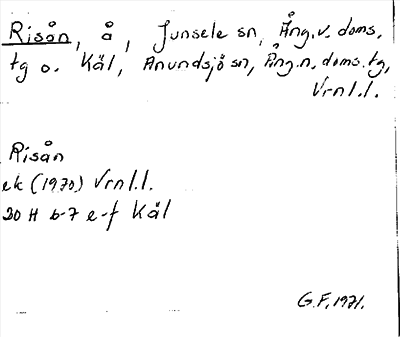 Risån, å, Junsele sn, Ång.v. doms.
tg o. Käl, Anundsjö sn, Ång.n. doms.tg,
Vrnl.l.
Risån
ek (1970) Vrnl.l.
20 H 6-7 e-f Käl
G.F. 1971.